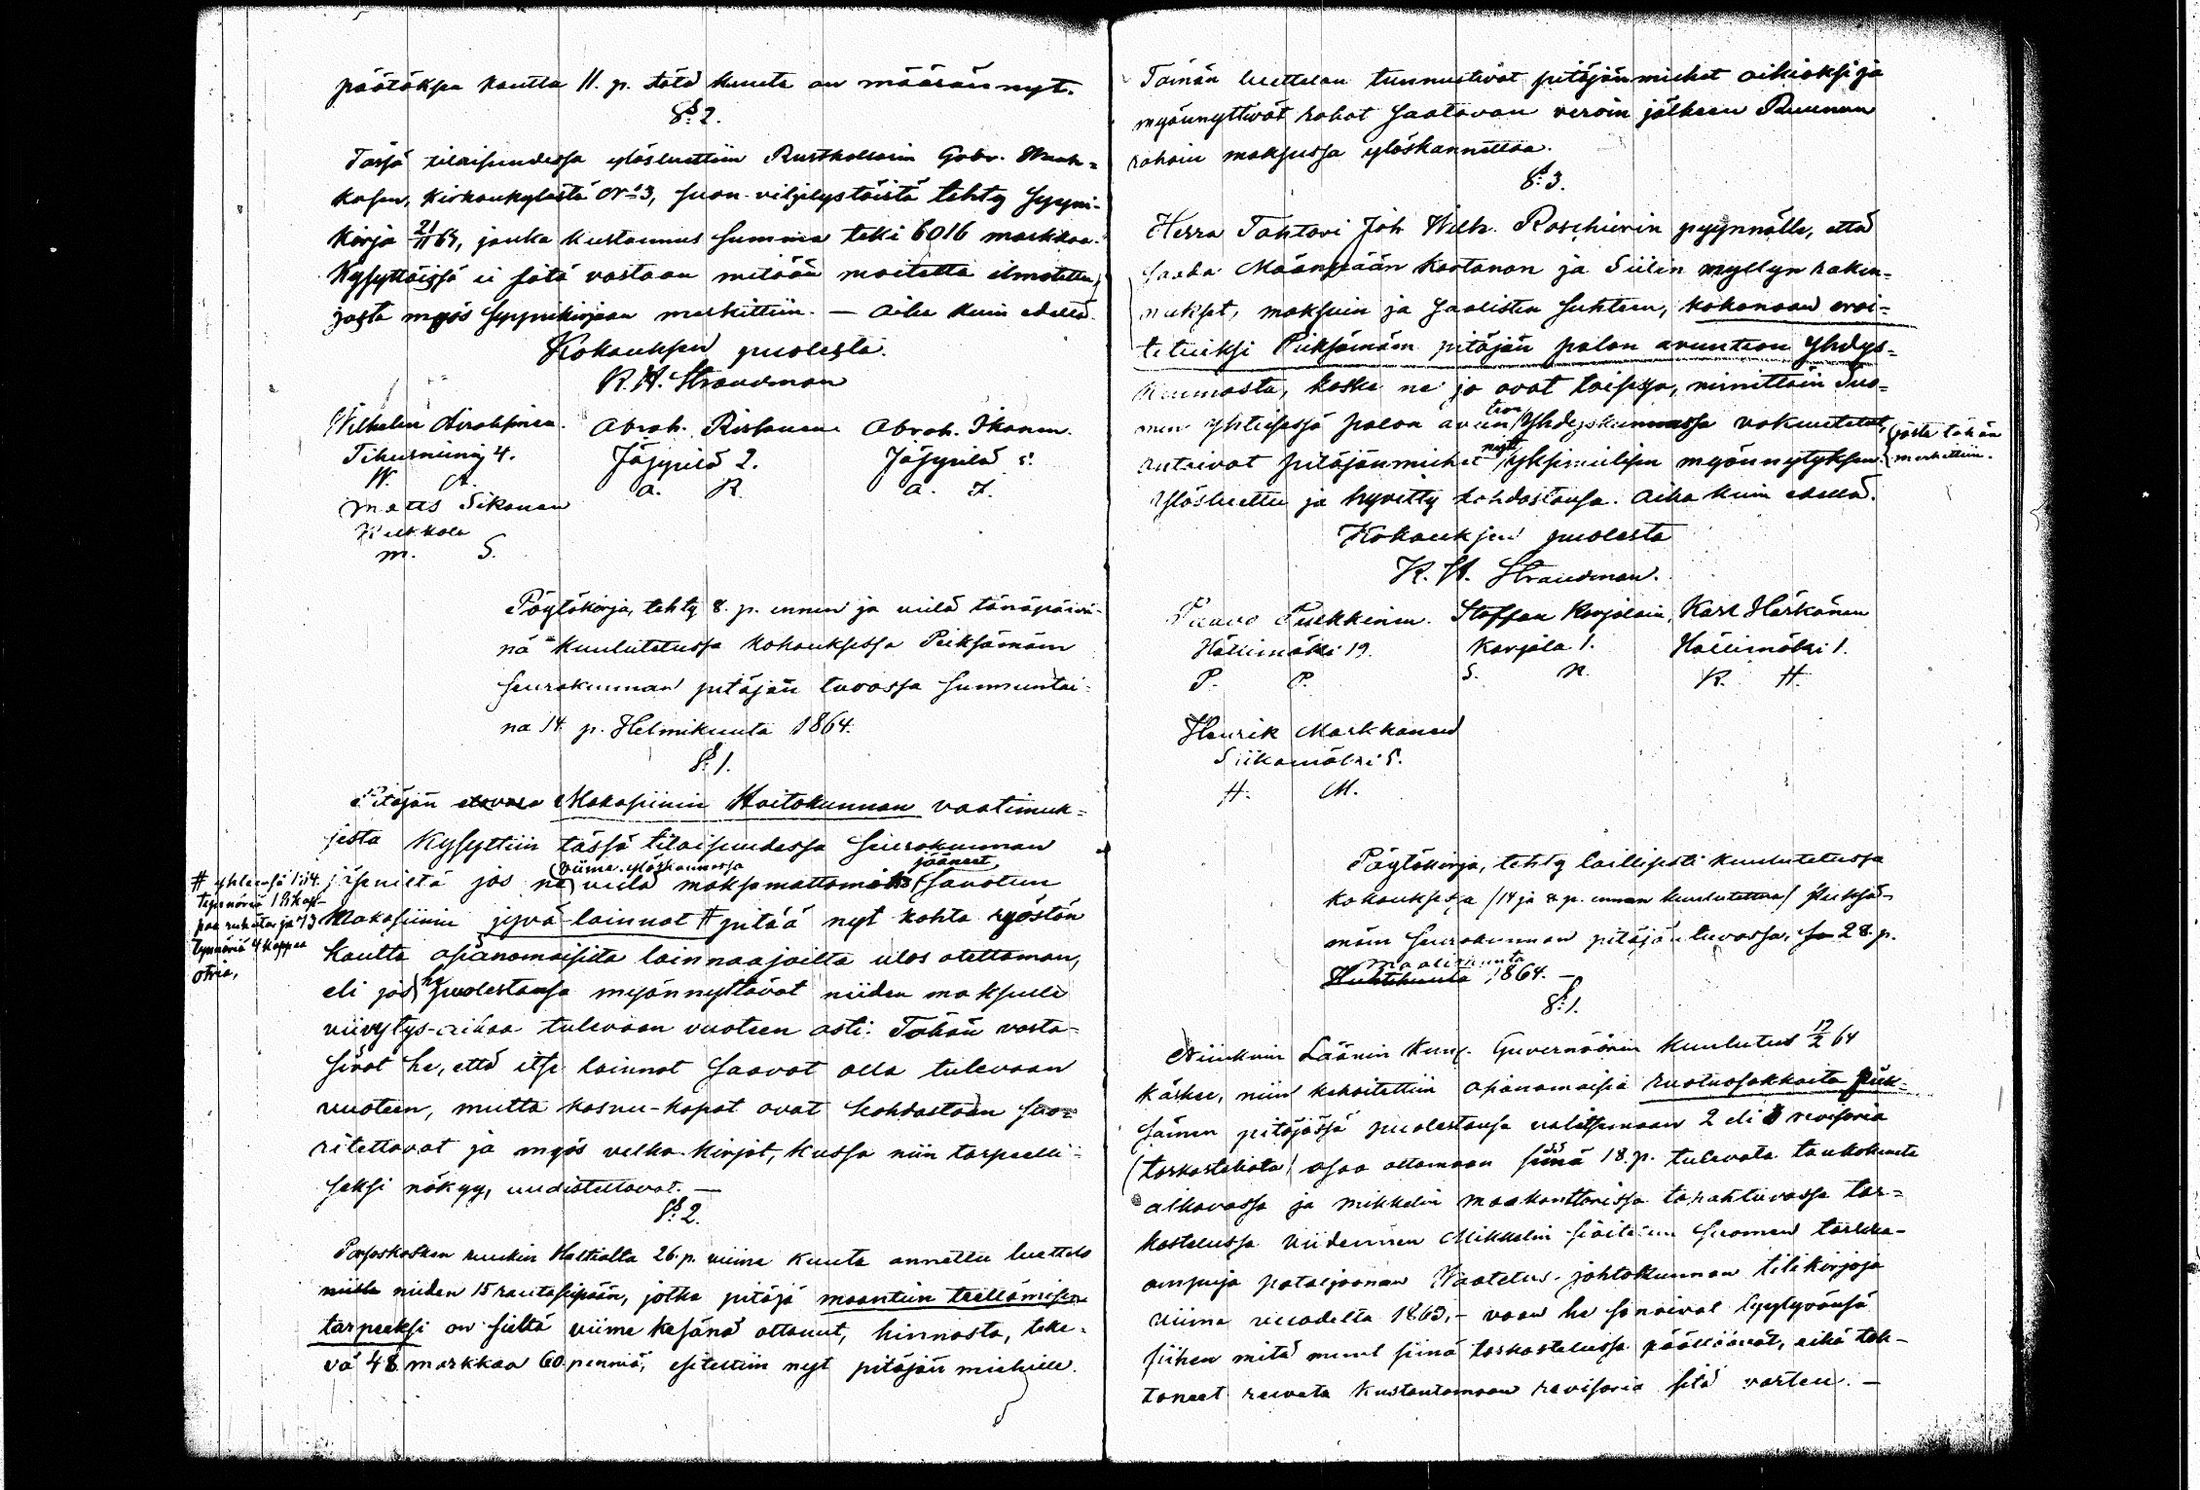 päätöksen kautta 11. p. tätä kuuta on määrännyt.
§ 2.
Tässä tilaisuudessa ylösluettiin Rusthollarin Gabr.
kosen, Kirkonkylästä No 3, suon-viljelystöistä tehty syyni-
kirja 21/11 63, jonka kustannus summa teki 6016 markkaa.
Kysyttäissä ei sitä vastaan mitään moitetta ilmotettu,
josta myös syynikirjaan merkittiin. — Aika kuin edellä.
Kokouksen puolesta.
K. H. Strandman
Wilhelm Abrah. Rissanen Abrah. Ikonen.
Tihusniemi 4. Jäppilä 2. Jäppilä 5.
W. A. R. A. I.
Matts Sikanen
M. S.
Pöytäkirja, tehty 8. p. ennen ja vielä tänäpäivä-
nä kuulutetussa kokouksessa Pieksämäen
seurakunnan pitäjän tuvassa sunnuntai-
na 14. p. Helmikuuta 1864.
§ 1.
Pitäjän Makasiinin Hoitokunnan vaatimuk-
sesta kysyttiin tässä tilaisuudessa seurakunnan
viime ylöskannossa jääneet
jäseniltä jos ne vielä maksamattomiksi Savotun
# yhteensä 1814.
tynnöriä 18 kap-
paa rukiita ja 73
tynnöriä 4 kappaa
otraa,
Makasiinin jyvä-lainnat # pitää nyt kohta ryöstön
kautta asianomaisilta lainnaajoilta ulos otettaman,
eli jos he puolestansa myönnyttävät niiden maksulle
viivytys-aikaa tulevaan vuoteen asti: Tähän vasta-
sivat he, että itse lainnat saavat olla tulevaan
vuoteen, mutta kasvu-kapat ovat kohdastaan suo-
ritettavat ja myös velka-kirjat, kussa niin tarpeelli-
seksi näkyy, uudistettavat. —
§ 2.
ruukin Haltialta 26. p. viime kuuta annettu luettelo
niiden 15 rautasipään, jotka pitäjä maantien teettämisen
tarpeeksi on sieltä viime kesänä ottanut, hinnasta, teke-
vä 48 markkaa 60 penniä, esitettiin nyt pitäjän miehille.
Tämän luettelon tunnustivat pitäjänmiehet oikiaksi ja
myönnyttivät rahat saatavan veroin jälkeen Ruunun
rahain maksussa ylöskannettaa.
§ 3.
Herra Tohtori Joh. Wilh. Roschierin pyynnölle, että
saada Määnpään kartanon ja Siilin myllyn raken-
nukset, maksuin ja saalisten suhteen, kokonaan eroi-
tetuiksi Pieksämäen pitäjän palon avunteon Yhdys-
kunnasta, koska ne jo ovat toisessa, nimittäin Suo-
men yhteisessä palon avun teon Yhdyskunnassa vakuutetut,
antoivat pitäjänmiehet nyt yksimielisen myönnytyksen. (josta tähän
merkittiin.
Ylösluettu ja hyvitty kohdastansa. Aika kuin edellä.
Kokouksen puolesta
K. H. Strandman.
Paavo Pulkkinen. Staffan Karjalain, Karl Härkönen
Hällimäki 19. Karjala 1. Hällimäki 1.
P. P. S. K. K. H.
Henrik Markkanen
Siikamäki 5.
H. M.
Pöytäkirja, tehty laillisesti kuulutetussa
kokouksessa (14 ja 8 p. ennen kuulutettua) Pieksä-
mäen seurakunnan pitäjän tuvassa, 28. p.
Maaliskuuta
Huhtikuuta 1864. —
§ 1.
Niinkuin Läänin Kung. Guvernöörin kuulutus 17/2 64
käskee, niin kehoitettiin asianomaisia ruotusakkaita Piek-
sämen pitäjässä puolestansa valitsemaan 2 eli 3 revisoria
(tarkasteliata) osaa ottamaan siinä 18. p. tulevata toukokuuta
alkavassa ja Mikkelin maakonttorissa tapahtuvassa tar-
kastelussa viidennen Mikkelin Suomen tarkka-
ampuja pataljoonan Waatetus-johtokunnan tilikirjoja
viime vuodelta 1863, — vaan he sanoivat tyytyvänsä
siihen mitä muut siinä tarkastelussa päättäävät, eikä tah-
toneet ruveta kustantamaan revisoria sitä varten. —